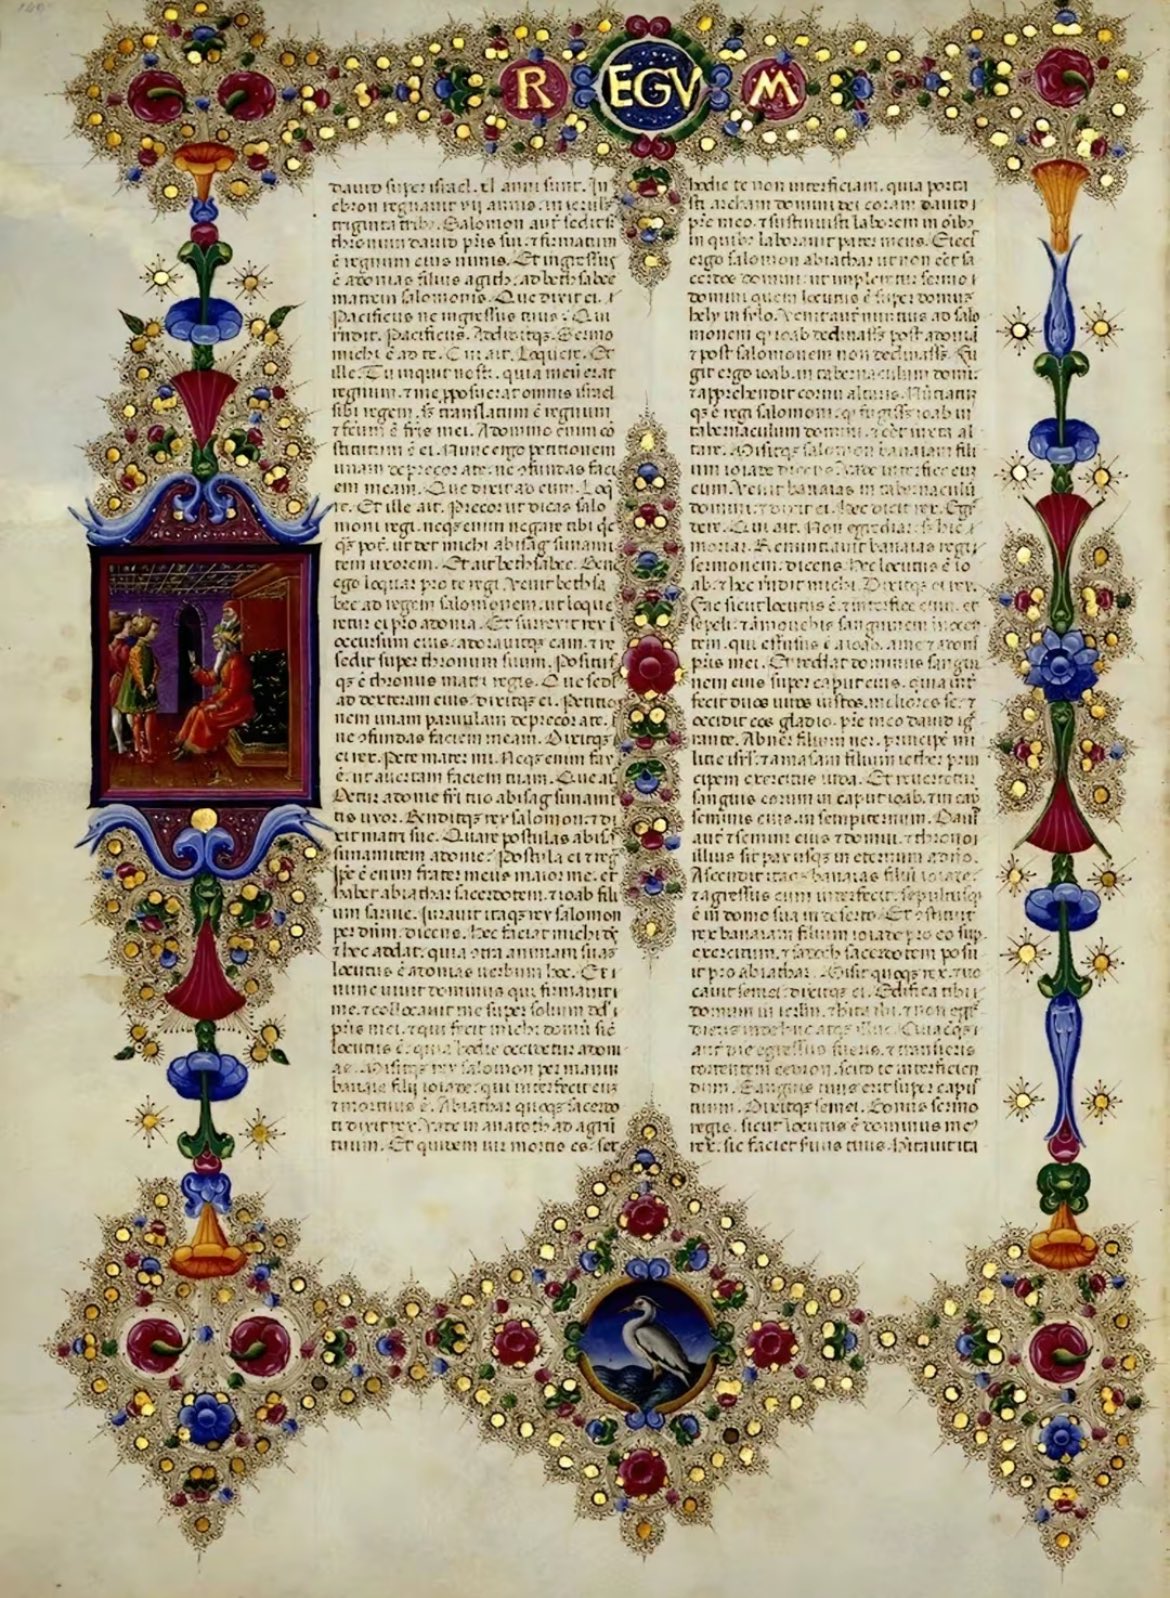 REGVM
dauid super israel. xl anni sunt. In
ebron regnauit vii annis. in ierl̅m
triginta tribꝫ. Salomon aut̅ sedit sr̅
thronum dauid pr̅is sui. ⁊ firmatum
ē regnum eius nimis. Et ingressus
ē adonias filius agith. ad bethsabee
matrem salomonis. Que dixit ei.
Pacificus ne ingressus tuus? Qui
rn̅dit. Pacificus. Addiditqꝫ. Sermo
michi ē ad te. Cui ait. Loquere. Et
ille. Tu inquit nosti. quia meū erat
regnum. ⁊ me pposuerat omnis israel
sibi regem. sꝫ translatum ē regnum
⁊ fc̅um ē fr̅is mei. A domino enim cō
stitutum ē ei. Nunc ergo petitionem
unam deprecor a te. ne ɔfundas faci
em meam. Que dixit ad eum. Loq̅
re. Et ille ait. Precor ut dicas salo
moni regi. neqꝫ enim negare tibi qc̅
qꝫ pot̅. ut det michi abisag sunami
tem uxorem. Et ait bethsabee. Bene
ego loquar pro te regi. Venit bethsa
bee ad regem salomonem. ut loque
retur ei pro adonia. Et surrexit rex ī
occursum eius. adorauitqꝫ eam. ⁊ re
sedit super thronum suum. Positus
qꝫ ē thronus matri regis. Que sedit
ad dexteram eius. dixitqꝫ ei. Petitio
nem unam paruulam deprecor a te.
ne ɔfundas faciem meam. Dixitqꝫ
ei rex. Pete mater mi. Neqꝫ enim fas
ē. ut auertam faciem tuam. Que ait
Detur adonie fr̅i tuo abisag sunami
tis uxor. Rn̅ditqꝫ rex salomon. ⁊ di
xit matri sue. Quare postulas abisag
sunamitem adonie? Postula ei ⁊ reg
Ip̅e ē enim frater meus maior me. et
habet abiathar sacerdotem. ⁊ ioab fili
um saruie. Jurauit itaqꝫ rex salomon
per dn̅m. dicens. Hec faciat michi ds̅
⁊ hec addat. quia ɔtra animam suam
locutus ē adonias uerbum hoc. Et
nunc uiuit dominus qui firmauit
me. ⁊ collocauit me super solium dd̅
pr̅is mei. ⁊ qui fecit michi domū sic̅
locutus ē. quia hodie occidetur adoni
as. Misitqꝫ rex salomon per manum
banaie filij ioiade. qui interfecit eum
⁊ mortuus ē. Abiathar quoqꝫ sacerdo
ti dixit rex. Vade in anatoth ad agrū
tuum. Et quidem uir mortis es. sed
hodie te non interficiam. quia porta
sti archam domini dei coram dauid
pr̅e meo. ⁊ sustinuisti laborem in oībꝫ
in quibꝫ laborauit pater meus. Eiecit
ergo salomon abiathar ut non eēt sa
cerdos domini. ut impleretur sermo
domini quem locutus ē super domum
hely in sylo. Venit aut̅ nuntius ad salo
monem quod ioab declinass̅ post adoniā
⁊ post salomonem non declinass̅. Fu
git ergo ioab in tabernaculum domini.
⁊ apprehendit cornu altaris. Nūtiatū
qꝫ ē regi salomoni. q̅ fugiss̅ ioab in
tabernaculum domini. ⁊ eēt iuxta al
tare. Misitqꝫ salomon banaiam fili
um ioiade dicens. Vade interfice eum
cum. Venit banaias in tabernaculū
domini. ⁊ dixit ei. Hec dicit rex. Egre
dere. Cui ait. Non egrediar. sꝫ hic
moriar. Renuntiauit banaias regi
sermonem. dicens. Hec locutus ē io
ab. ⁊ hec rn̅dit michi. Dixitqꝫ ei rex.
Fac sicut locutus ē. ⁊ interfice eum. et
sepeli. ⁊ amouebis sanguinem innocen
tem. qui effusus ē a ioab. a me ⁊ a domo
pr̅is mei. Et reddat dominus sangui
nem eius super caput eius. quia int̅
fecit duos uiros iustos. meliores se. ⁊
occidit eos gladio. pr̅e meo dauid ig
rante. Abner filium ner. principē mi
litie isrl̅. ⁊ amasam filium iether prin
cipem exercitus iuda. Et reuertetur
sanguis eorum in caput ioab. ⁊ in cap̅
seminis eius in sempiternum. Dauid
aut̅ ⁊ semini eius ⁊ domui. ⁊ throno
illius sit pax usqꝫ in eternum a dn̅o.
Ascendit itaqꝫ banaias filius ioiade.
⁊ agressus eum interfecit. sepultusqꝫ
ē in domo sua in deserto. Et ɔstituit
rex banaiam filium ioiade pro eo sup̅
exercitum. ⁊ sadoch sacerdotem posu
it pro abiathar. Misit quoqꝫ rex. ⁊ uo
cauit semei. dixitqꝫ ei. Edifica tibi
domum in ierl̅m. ⁊ habita ibi. ⁊ non egre
dieris inde huc atqꝫ illuc. Quacūqꝫ
aut̅ die egressus fueris. ⁊ transieris
torrentem cedron. scito te interficien
dum. Sanguis tuus erit super caput
tuum. Dixitqꝫ semei. Bonus sermo
regis. sicut locutus ē dominus meus
rex. sic faciet seruus tuus. Hitauit ita